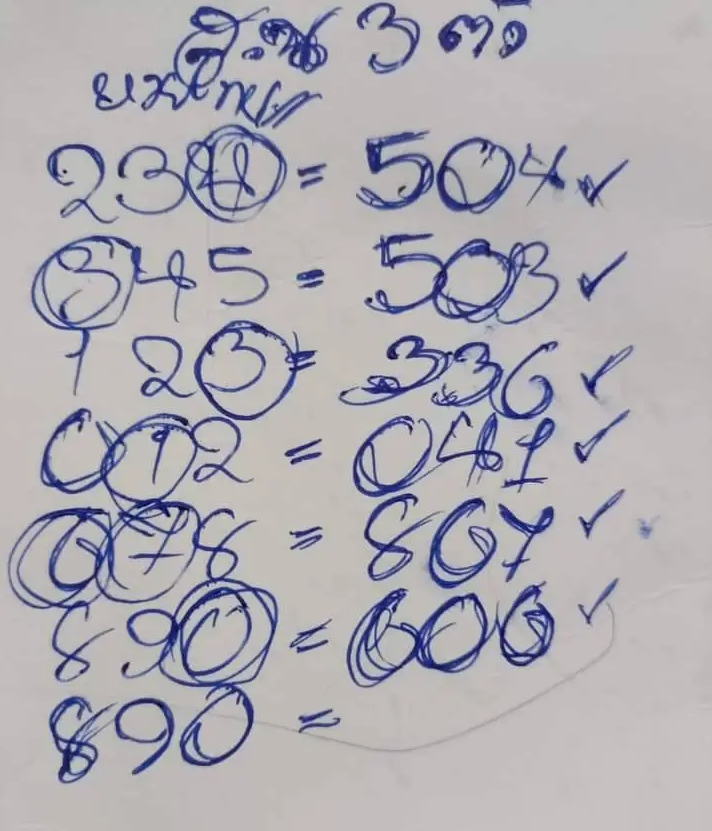 3 ตัว
234 = 504 ✓
345 = 503 ✓
123 = 336 ✓
012 = 041 ✓
678 = 867 ✓
890 = 606 ✓
890 =